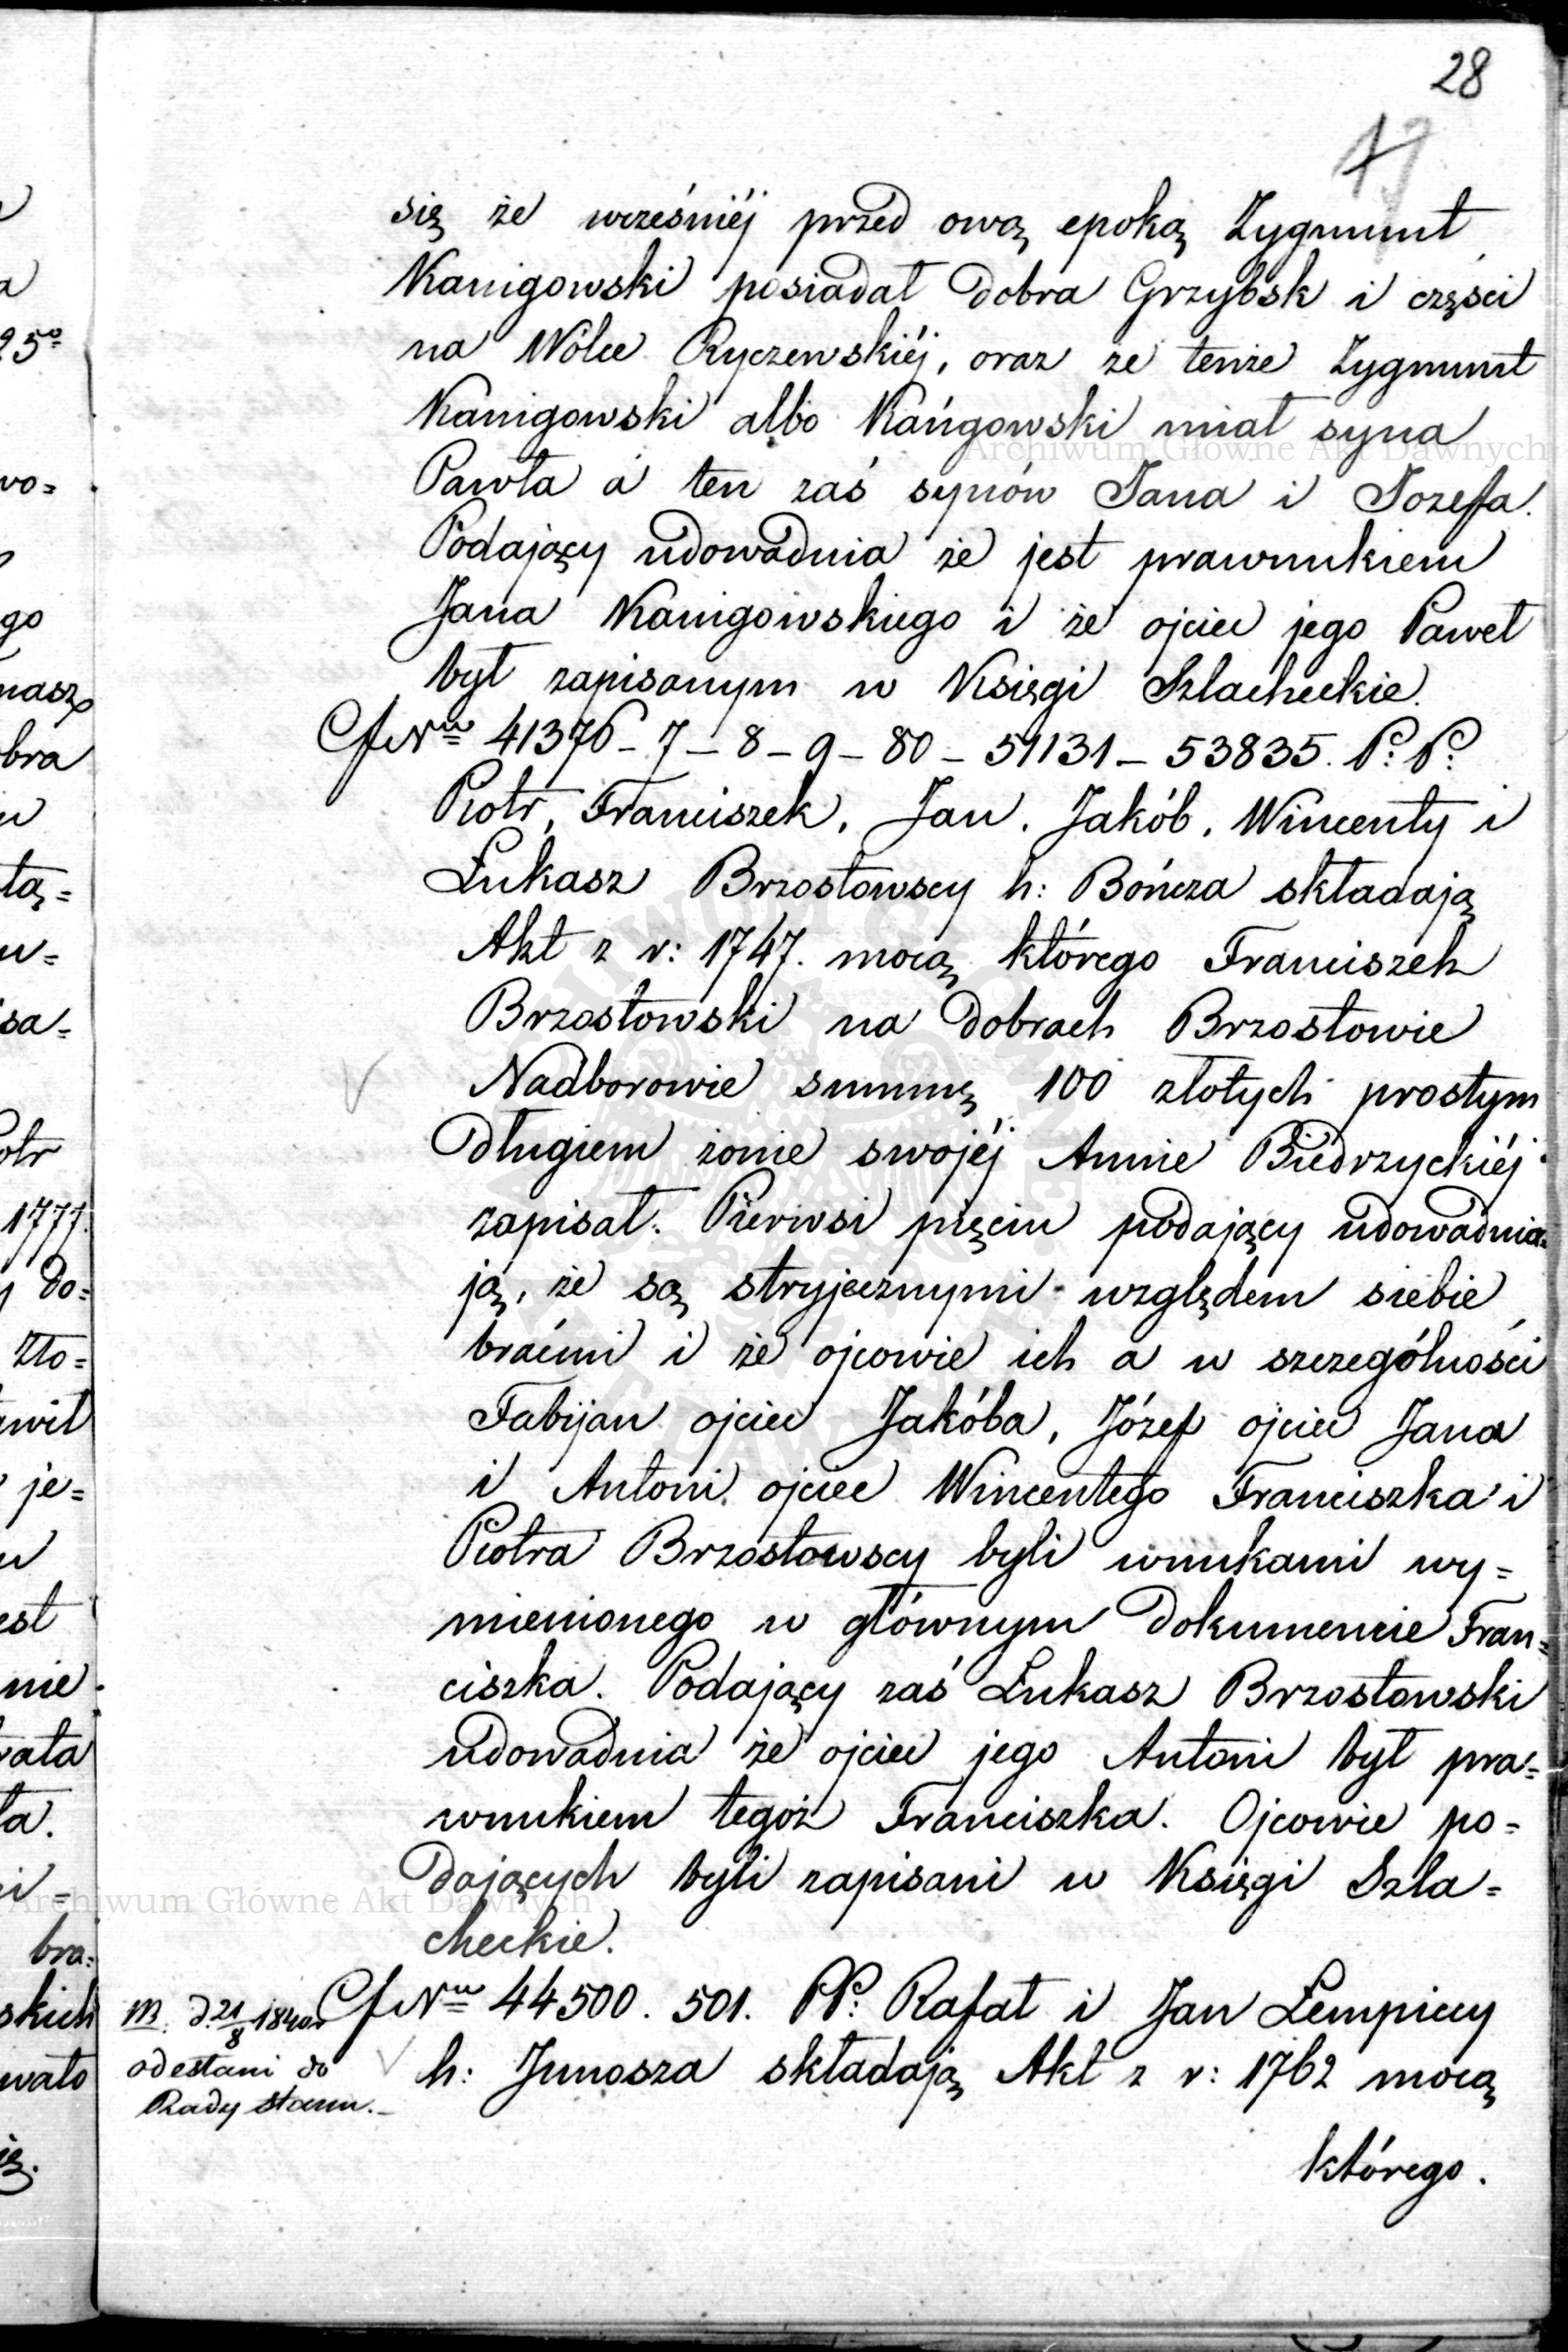 28
19
się że wcześniéj przed ową epoką Zygmunt
Kanigowski posiadał dobra Grzybsk i części
na Wólce Ryczewskiéj, oraz że tenże Zygmunt
Kanigowski albo Kańgowski miał syna
Pawła a ten zaś synów Jana i Jozefa.
Podający udowadnia że jest prawnukiem
Jana Kanigowskiego i że ojciec jego Paweł
był zapisanym w Księgi Szlacheckie.
41376 - 7 - 8 - 9 - 80 - 51131 - 53835. P. P.
Piotr, Franciszek, Jan, Jakób, Wincenty i
Łukasz Brzostowscy h: Bończa składają
Akt z r: 1747. mocą którego Franciszek
Brzostowski na dobrach Brzostowie
Nadborowie summę 100 złotych prostym
długiem żonie swojéj Annie Biedrzyckiéj
zapisał. Pierwsi pięciu podający udowadnia=
ją, że są stryjecznymi względem siebie
braćmi i że ojcowie ich a w szczególności
Fabijan ojciec Jakóba, Józef ojciec Jana
i Antoni ojciec Wincentego Franciszka i
Piotra Brzostowscy byli wnukami wy=
mienionego w głównym dokumencie Fran=
ciszka. Podający zaś Łukasz Brzostowski
udowadnia że ojciec jego Antoni był pra=
wnukiem tegoż Franciszka. Ojcowie po=
dających byli zapisani w Księgi Szla=
checkie.
44500. 501. PP. Rafał i Jan Łempiccy
h: Junosza składają Akt z r: 1762 mocą
którego.
M. d. 21/8 1840r
odesłani do
Rady stanu.
25°
wo=
go
nasz
bra
tą=
w=
sa=
otr
1777.
do=
zło=
wił
je=
est
nie
rata
ła.
i=
bra=
skich
wało
Archiwum Główne Akt Dawnych
Archiwum Główne Akt Dawnych